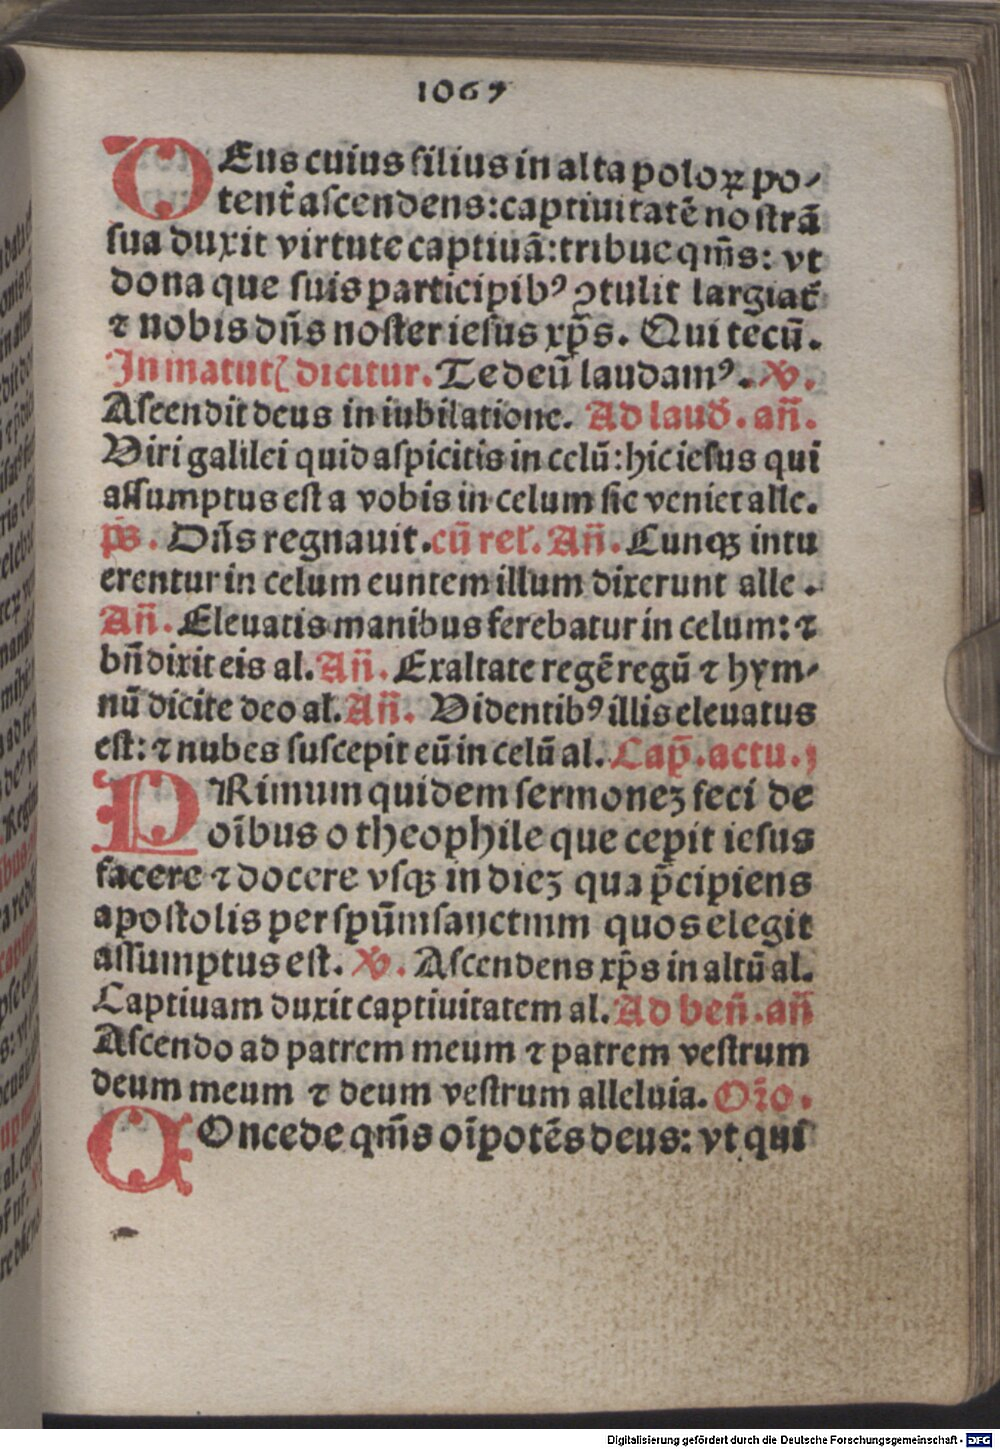 1067
DEus cuius filius in alta poloꝝ po⸗
tent᷑ aſcendens: captiuitatē noſtrã
ſua duxit virtute captiuã: tribue qm̃s: vt
dona que ſuis participibꝰ ↄtulit largiat᷑
⁊ nobis dñs noſter ieſus xp̃s. Qui tecũ.
In matut᷑ dicitur. Te deũ laudamꝰ. ℣.
Aſcendit deus in iubilatione. Ad laud̉. añ.
Viri galilei quid aſpicitis in celũ: hic ieſus qui
aſſumptus eſt a vobis in celum ſic veniet alle.
p̃s. Dñs regnauit. cũ rel̉. Añ. Cunqꝫ intu
erentur in celum euntem illum dixerunt alle.
Añ. Eleuatis manibus ferebatur in celum: ⁊
bñdixit eis al. Añ. Exaltate regē regũ ⁊ hym⸗
nũ dicite deo al̉. Añ. Videntibꝰ illis eleuatus
eſt: ⁊ nubes ſuſcepit eũ in celũ al. Cap̃. actu. j
PRimum quidem ſermoneꝫ feci de
oĩbus o theophile que cepit ieſus
facere ⁊ docere vſqꝫ in dieꝫ qua p̃cipiens
apoſtolis per ſpũmſanctmm quos elegit
aſſumptus eſt. ℣. Aſcendens xp̃s in altũ al.
Captiuam duxit captiuitatem al. Ad beñ. añ
Aſcendo ad patrem meum ⁊ patrem veſtrum
deum meum ⁊ deum veſtrum alleluia. Oꝛ̃o.
COncede qm̃s oĩpotēs deus: vt qui
Digitalisierung gefördert durch die Deutsche Forschungsgemeinschaft - DFG